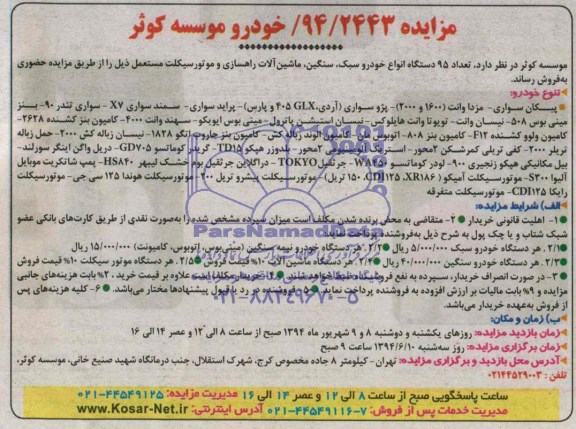 مزایده ۹۴/۲۴۴۳/ خودرو موسسه کوثر
موسسه کوثر در نظر دارد، تعداد ۹۵ دستگاه انواع خودرو سبک، سنگین، ماشین آلات راهسازی و موتورسیکلت مستعمل ذیل را از طریق مزایده حضوری
به‌فروش رساند.
تنوع خودرو:
پیکان سواری - مزدا وانت (۱۶۰۰ و ۲۰۰۰) - پژو سواری (آردی، GLX ۴۰۵ و پارس) - پراید سواری - سمند سواری X۷ - سواری تندر ۹۰ - بنز
مینی بوس ۵۰۸ - نیسان وانت - تویوتا وانت هایلوکس - نیسان استیشن پاترول - مینی بوس ایویکو - سهند وانت ۴۰۰۰ - کامیون بنز کشنده ۲۶۲۸ -
کامیون ولوو کشنده F۱۲ - کامیون بنز ۸۰۸ - اتوبوس مان - کامیون الوند زباله کش - کامیون بنز جاروب رنگو ۱۸۲۸ - نیسان زباله کش ۲۰۰۰ - حمل زباله
تریلر ۲۰۰۰ - کفی تریلی کمرشکن ۲محور - استریک آلومینیومی ۲محور - بلدوزر هپکو TD۱۵ - گریدر کوماتسو GD۷۰۵ - دریل واگن اینگر سولرند -
بیل مکانیکی هپکو زنجیری ۹۰۰ - لودر کوماتسو W۸۴۵۰ - جرثقیل TOKYO - دراگلاین جرثقیل بوم خشک لیبهر HS۸۴۰ - پمپ شاتکریت موبایل
آلیوا S۳۰۰ - موتورسیکلت آمیکو (CDI۱۲۵، XR۱۸۶، ۱۵۰ تریل) - موتورسیکلت پیشرو تریل ۲۰۰ - موتورسیکلت هوندا ۱۲۵ سی جی - موتورسیکلت
رایکا CDI۱۲۵ - موتورسیکلت متفرقه
الف) شرایط مزایده:
۱- اهلیت قانونی خریدار ۲- متقاضی به محض برنده شدن مکلف است میزان سپرده مشخص شده را به‌صورت نقدی از طریق کارت‌های بانکی عضو
شبکه شتاب و یا چک پول به شرح ذیل به‌فروشنده
۲/۱. هر دستگاه خودرو سبک ۵/۰۰۰/۰۰۰ ریال ۲/۲. هر دستگاه خودرو نیمه سنگین (مینی‌بوس، اتوبوس، کامیونت) ۱۵/۰۰۰/۰۰۰ ریال
۲/۳. هر دستگاه خودرو سنگین ۴۰/۰۰۰/۰۰۰ ریال ۲/۴. هر دستگاه ماشین آلات ۱۰% قیمت فروش ۲/۵. هر دستگاه موتور سیکلت ۱۰% قیمت فروش
۳- در صورت انصراف خریدار، سپرده به نفع فروشگاه ضبط خواهد شد. علاوه بر قیمت خرید، ۲% بابت هزینه‌های جانبی
مزایده و ۹% بابت مالیات بر ارزش افزوده به فروشنده پرداخت نماید. ۵- فروشنده در رد یا قبول پیشنهادها مختار می‌باشد. ۶- کلیه هزینه‌های پس
از فروش به‌عهده خریدار می‌باشد.
ب) زمان و مکان:
زمان بازدید مزایده: روزهای یکشنبه و دوشنبه ۸ و ۹ شهریور ماه ۱۳۹۴ صبح از ساعت ۸ الی ۱۲ و عصر ۱۴ الی ۱۶
زمان برگزاری مزایده: روز سه‌شنبه ۱۳۹۴/۶/۱۰ ساعت ۹ صبح
آدرس محل بازدید و برگزاری مزایده: تهران - کیلومتر ۸ جاده مخصوص کرج، شهرک استقلال، جنب درمانگاه شهید صنیع خانی، موسسه کوثر،
تلفن: ۰۲۱۴۴۵۲۹۰۰۳
ساعت پاسخگویی صبح از ساعت ۸ الی ۱۲ و عصر ۱۴ الی ۱۶ مدیریت مزایده: ۴۴۵۴۹۱۲۵-۰۲۱
مدیریت خدمات پس از فروش: ۷-۴۴۵۴۹۱۱۶-۰۲۱ آدرس اینترنتی: www.Kosar-Net.ir
ParsNamadData
۰۲۱-۸۸۳۴۹۶۷۰-۵